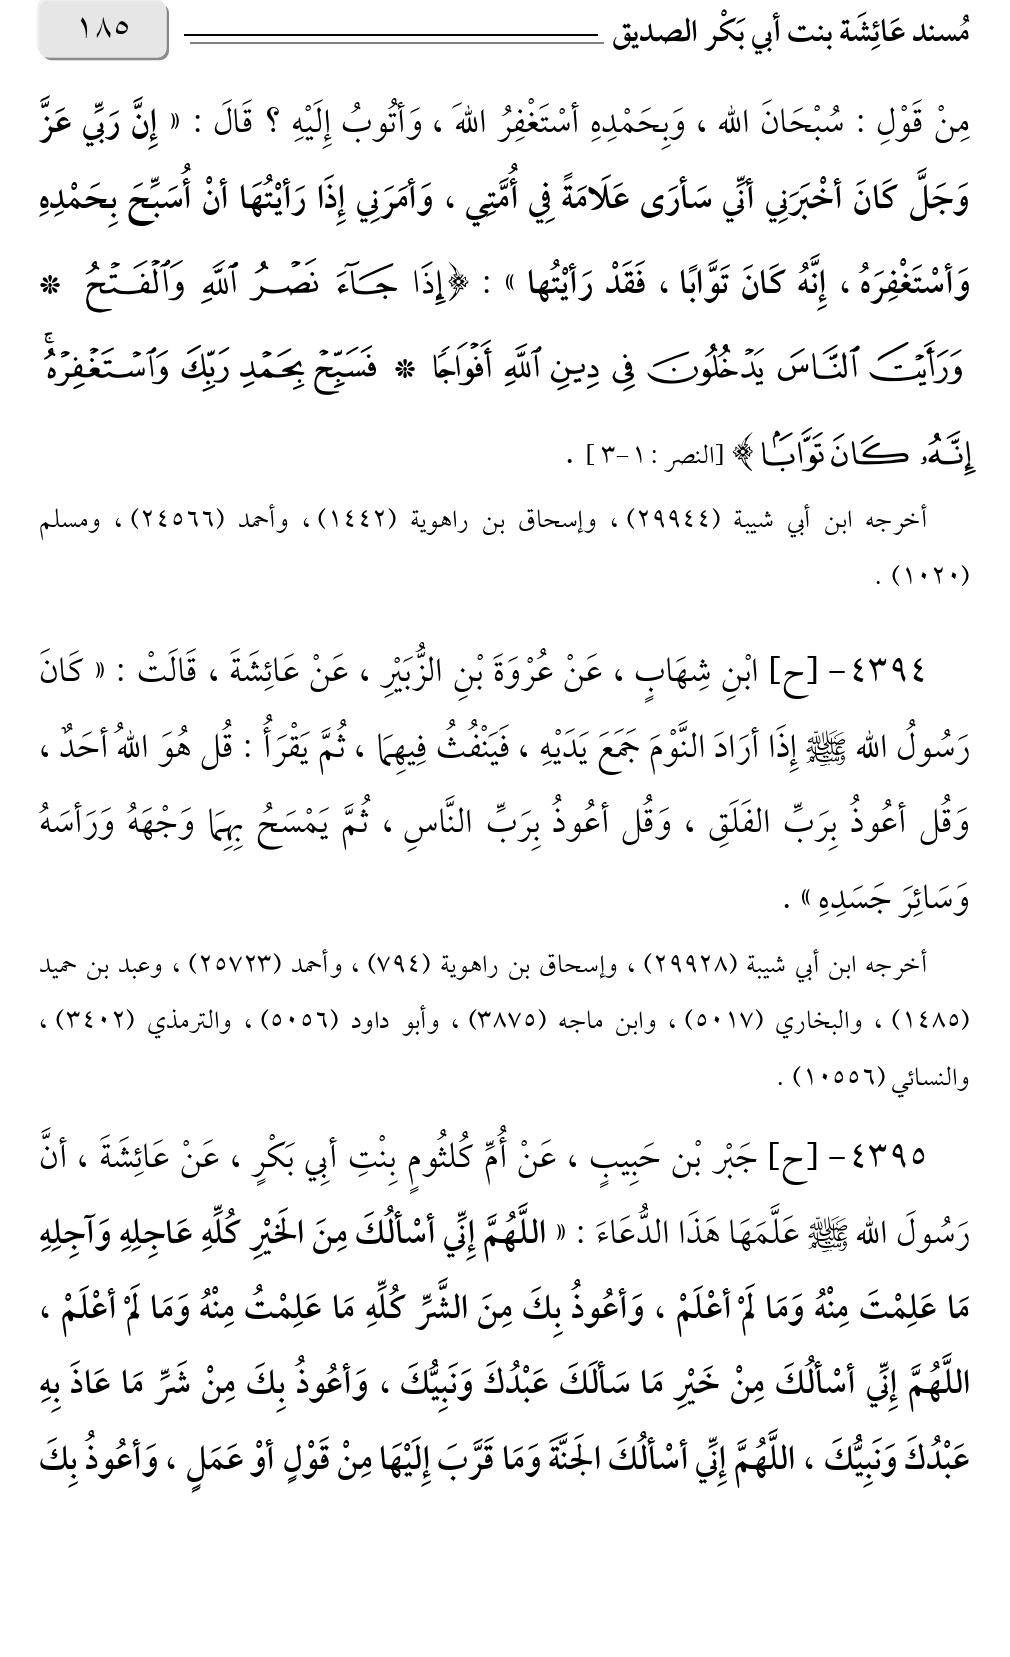 مُسند عَائِشَة بنت أبي بَكْر الصديق ١٨٥
مِنْ قَوْلِ : سُبْحَانَ الله ، وَبِحَمْدِهِ أسْتَغْفِرُ اللهَ ، وَأتُوبُ إِلَيْهِ ؟ قَالَ : « إِنَّ رَبِّي عَزَّ
وَجَلَّ كَانَ أخْبَرَنِي أنِّي سَأرَى عَلَامَةً فِي أُمَّتِي ، وَأمَرَنِي إِذَا رَأيْتُهَا أنْ أُسَبِّحَ بِحَمْدِهِ
وَأسْتَغْفِرَهُ ، إِنَّهُ كَانَ تَوَّابًا ، فَقَدْ رَأيْتُها » : ﴿إِذَا جَآءَ نَصْرُ ٱللَّهِ وَٱلْفَتْحُ ❊
وَرَأَيْتَ ٱلنَّاسَ يَدْخُلُونَ فِي دِينِ ٱللَّهِ أَفْوَاجًا ❊ فَسَبِّحْ بِحَمْدِ رَبِّكَ وَٱسْتَغْفِرْهُۚ
إِنَّهُۥ كَانَ تَوَّابَۢا ﴾ [النصر : ١-٣ ] .
أخرجه ابن أبي شيبة (٢٩٩٤٤) ، وإسحاق بن راهوية (١٤٤٢) ، وأحمد (٢٤٥٦٦) ، ومسلم
(١٠٢٠) .
٤٣٩٤- [ح] ابْنِ شِهَابٍ ، عَنْ عُرْوَةَ بْنِ الزُّبَيْرِ ، عَنْ عَائِشَةَ ، قَالَتْ : « كَانَ
رَسُولُ الله ﷺ إِذَا أرَادَ النَّوْمَ جَمَعَ يَدَيْهِ ، فَيَنْفُثُ فِيهِمَا ، ثُمَّ يَقْرَأُ : قُل هُوَ اللهُ أحَدٌ ،
وَقُل أعُوذُ بِرَبِّ الفَلَقِ ، وَقُل أعُوذُ بِرَبِّ النَّاسِ ، ثُمَّ يَمْسَحُ بِهِمَا وَجْهَهُ وَرَأسَهُ
وَسَائِرَ جَسَدِهِ » .
أخرجه ابن أبي شيبة (٢٩٩٢٨) ، وإسحاق بن راهوية (٧٩٤) ، وأحمد (٢٥٧٢٣) ، وعبد بن حميد
(١٤٨٥) ، والبخاري (٥٠١٧) ، وابن ماجه (٣٨٧٥) ، وأبو داود (٥٠٥٦) ، والترمذي (٣٤٠٢) ،
والنسائي (١٠٥٥٦) .
٤٣٩٥- [ح] جَبْر بْن حَبِيبٍ ، عَنْ أُمِّ كُلثُومٍ بِنْتِ أبِي بَكْرٍ ، عَنْ عَائِشَةَ ، أنَّ
رَسُولَ الله ﷺ عَلَّمَهَا هَذَا الدُّعَاءَ : « اللَّهُمَّ إِنِّي أسْألُكَ مِنَ الخَيْرِ كُلِّهِ عَاجِلِهِ وَآجِلِهِ
مَا عَلِمْتَ مِنْهُ وَمَا لَمْ أعْلَمْ ، وَأعُوذُ بِكَ مِنَ الشَّرِّ كُلِّهِ مَا عَلِمْتُ مِنْهُ وَمَا لَمْ أعْلَمْ ،
اللَّهُمَّ إِنِّي أسْألُكَ مِنْ خَيْرِ مَا سَألَكَ عَبْدُكَ وَنَبِيُّكَ ، وَأعُوذُ بِكَ مِنْ شَرِّ مَا عَاذَ بِهِ
عَبْدُكَ وَنَبِيُّكَ ، اللَّهُمَّ إِنِّي أسْألُكَ الجَنَّةَ وَمَا قَرَّبَ إِلَيْهَا مِنْ قَوْلٍ أوْ عَمَلٍ ، وَأعُوذُ بِكَ